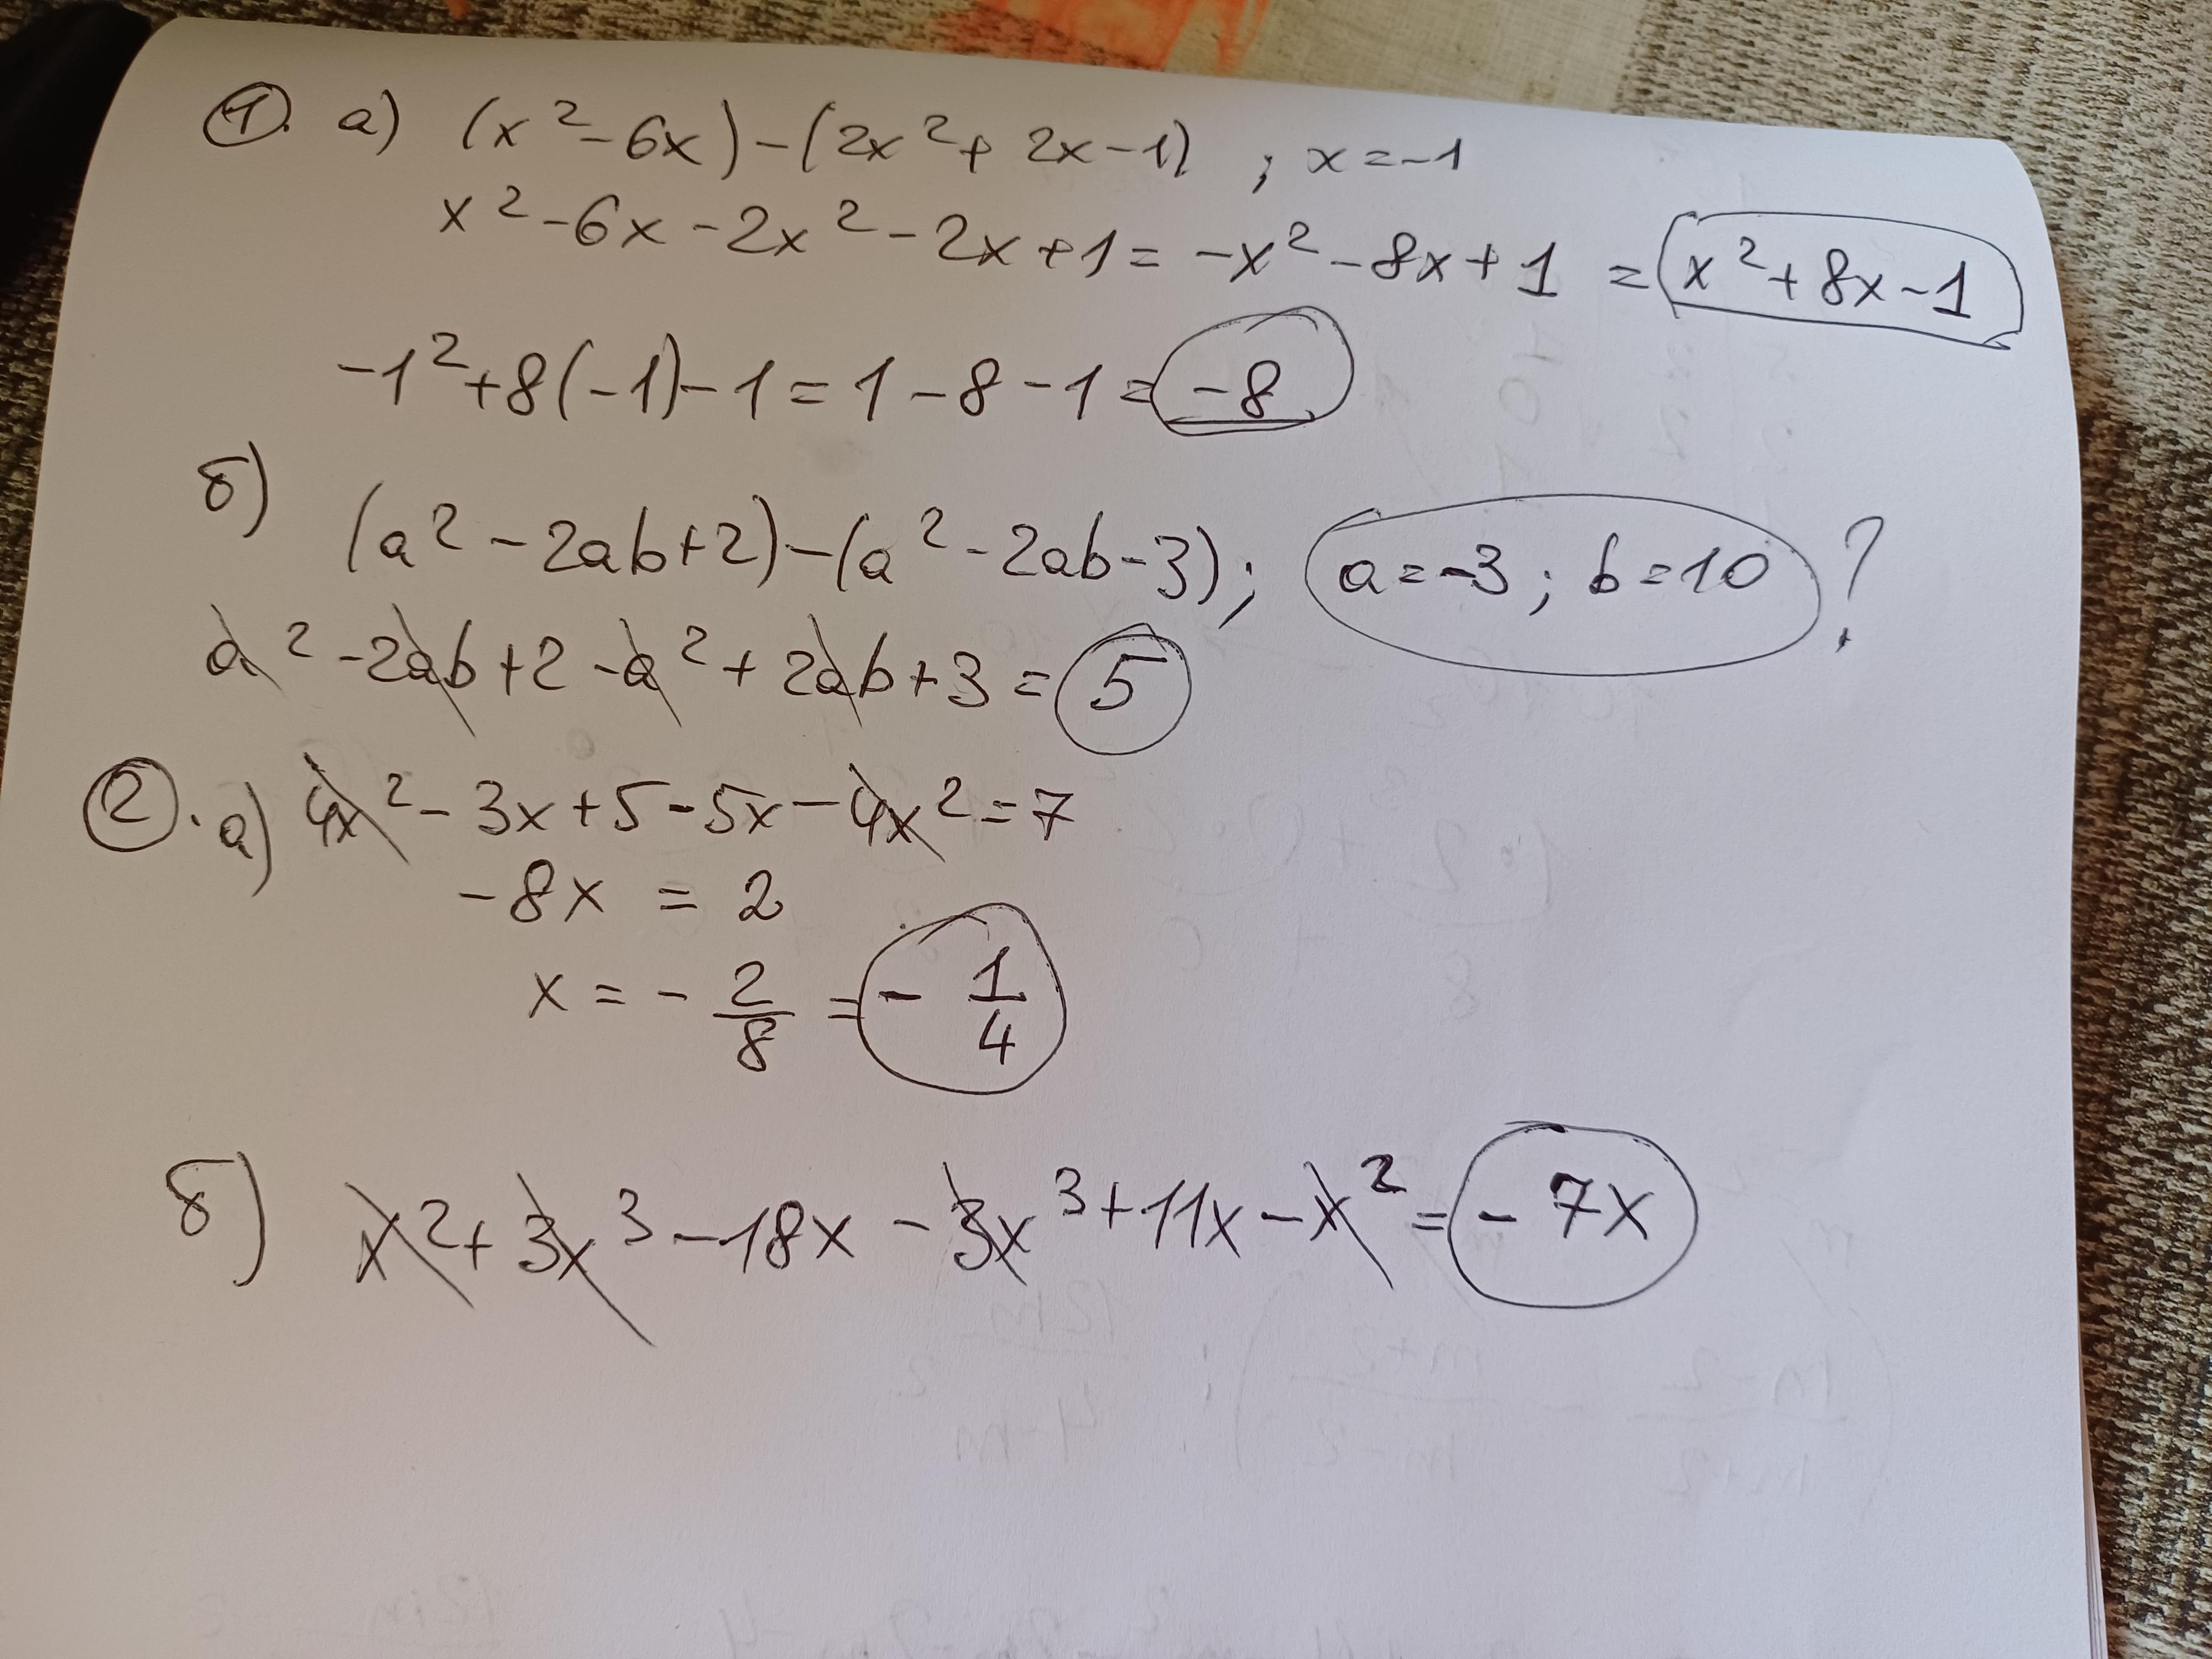 1. а) (x² - 6x) - (2x² + 2x - 1) ; x = -1
x² - 6x - 2x² - 2x + 1 = -x² - 8x + 1 = x² + 8x - 1
-1² + 8(-1) - 1 = 1 - 8 - 1 = -8
б)
(a² - 2ab + 2) - (a² - 2ab - 3); a = -3; b = 10 ?
a² - 2ab + 2 - a² + 2ab + 3 = 5
2. а) 4x² - 3x + 5 - 5x - 4x² = 7
-8x = 2
x = - 2/8 = - 1/4
б) x² + 3x³ - 18x - 3x³ + 11x - x² = - 7x